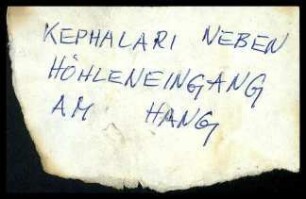 KEPHALARI NEBEN
HÖHLENEINGANG
AM HANG